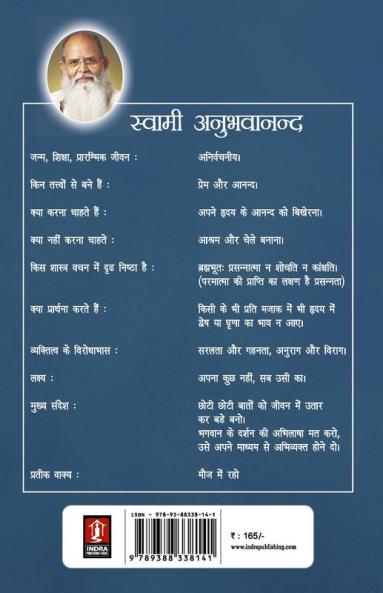 स्वामी अनुभवानन्द
जन्म, शिक्षा, प्रारम्भिक जीवन : अनिर्वचनीय।
किन तत्त्वों से बने हैं : प्रेम और आनन्द।
क्या करना चाहते हैं : अपने हृदय के आनन्द को बिखेरना।
क्या नहीं करना चाहते : आश्रम और चेले बनाना।
किस शास्त्र वचन में दृढ निष्ठा है : ब्रह्मभूतः प्रसन्नात्मा न शोचति न कांक्षति।
(परमात्मा की प्राप्ति का लक्षण है प्रसन्नता)
क्या प्रार्थना करते हैं : किसी के भी प्रति मजाक में भी हृदय में
द्वेष या घृणा का भाव न आए।
व्यक्तित्व के विरोधाभास : सरलता और गहनता, अनुराग और विराग।
लक्ष्य : अपना कुछ नहीं, सब उसी का।
मुख्य संदेश : छोटी छोटी बातों को जीवन में उतार
कर बडे बनो।
भगवान के दर्शन की अभिलाषा मत करो,
उसे अपने माध्यम से अभिव्यक्त होने दो।
प्रतीक वाक्य : मौज में रहो
INDRA
PUBLISHING HOUSE
ISBN - 978-93-88338-14-1
9 789388 338141
₹ : 165/-
www.indrapublishing.com